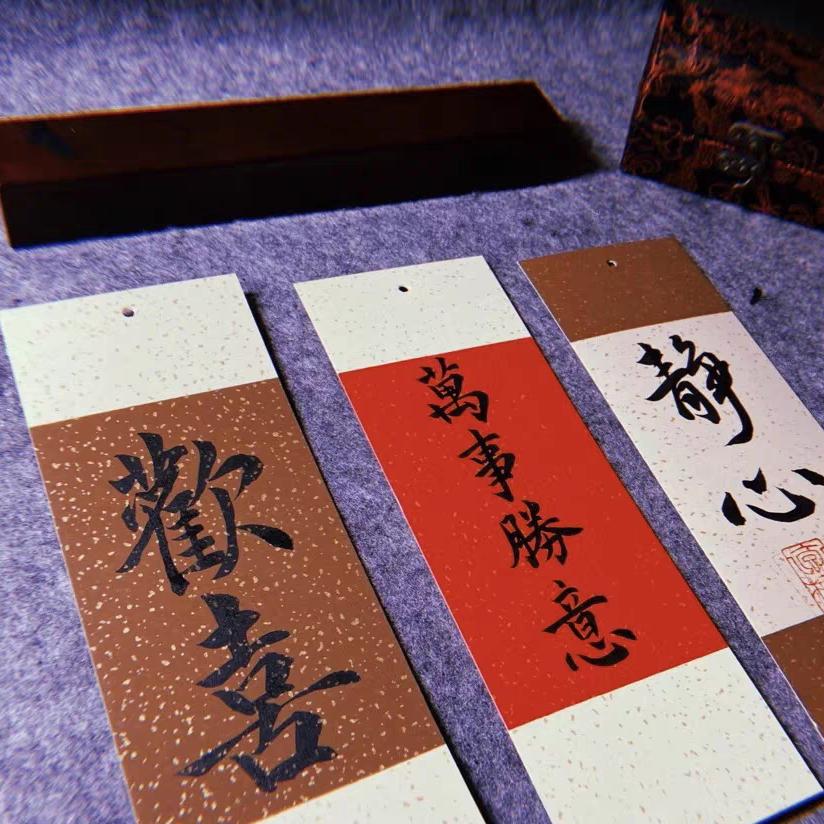 歡喜
萬事勝意
靜心